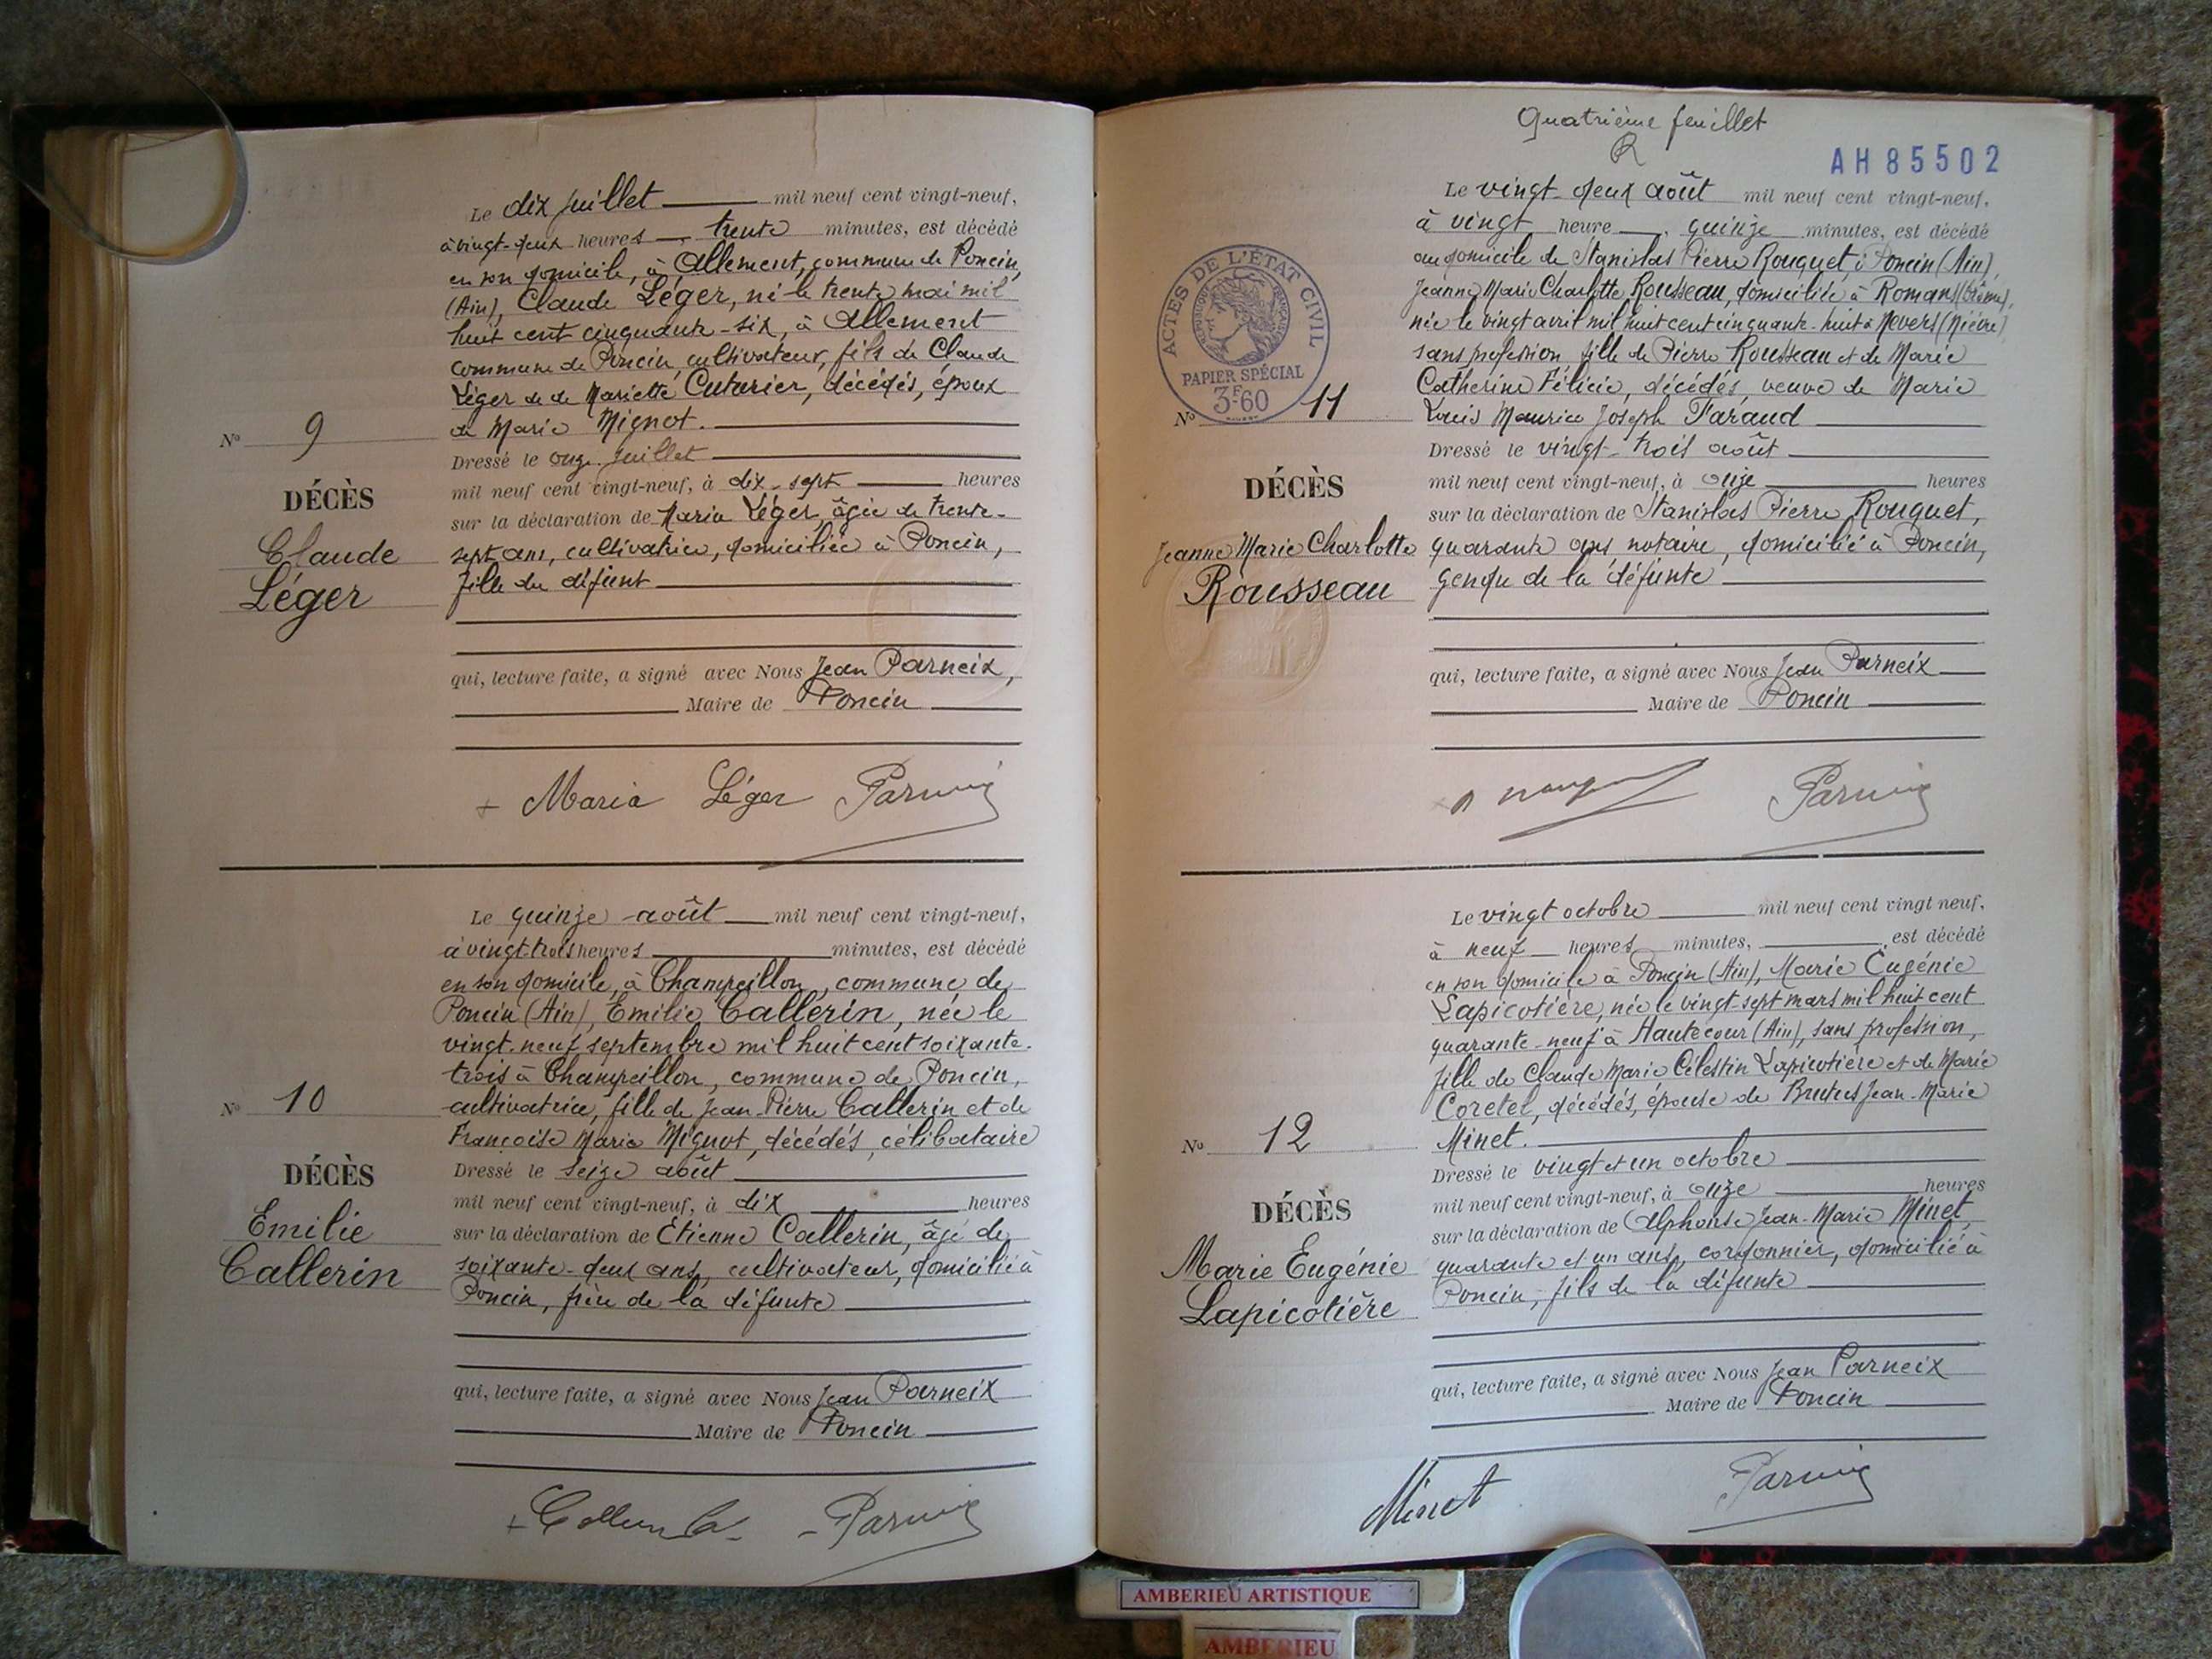 Le dix juillet mil neuf cent vingt-neuf,
à vingt-deux heures, trente minutes, est décédé
en son domicile, à Allement, commune de Poncin,
(Ain), Claude Léger, né le trente mai mil
huit cent cinquante-six, à Allement
commune de Poncin, cultivateur, fils de Claude
Léger et de Mariette Cuturier, décédés, époux
de Marie Mignot.
Nº 9
Dressé le onze juillet
mil neuf cent vingt-neuf, à dix-sept heures
DÉCÈS
Claude
Léger
sur la déclaration de Maria Léger, âgée de trente-
sept ans, cultivatrice, domiciliée à Poncin,
fille du défunt
qui, lecture faite, a signé avec Nous Jean Parneix,
Maire de Poncin
+ Maria Léger Parneix
Le quinze août mil neuf cent vingt-neuf,
à vingt-trois heures minutes, est décédé
en son domicile, à Champeillon, commune de
Poncin (Ain), Emilie Callerin, née le
vingt-neuf septembre mil huit cent soixante-
trois à Champeillon, commune de Poncin,
cultivatrice, fille de Jean-Pierre Callerin et de
Françoise Marie Mignot, décédés, célibataire
Nº 10
DÉCÈS
Emilie
Callerin
Dressé le seize août
mil neuf cent vingt-neuf, à dix heures
sur la déclaration de Etienne Callerin, âgé de
soixante-deux ans, cultivateur, domicilié à
Poncin, frère de la défunte
qui, lecture faite, a signé avec Nous Jean Parneix
Maire de Poncin
Parneix
Quatrième feuillet
R
AH 85502
Le vingt-deux août mil neuf cent vingt-neuf,
à vingt heure, quinze minutes, est décédé
au domicile de Stanislas Pierre Rouquet, à Poncin (Ain),
Jeanne Marie Charlotte Rousseau, domiciliée à Romans (Drôme),
née le vingt avril mil huit cent cinquante-huit à Nevers (Nièvre)
sans profession fille de Pierre Rousseau et de Marie
Catherine Félicie, décédés, veuve de Marie
Louis Maurice Joseph Faraud
ACTES DE L'ÉTAT CIVIL
RÉPUBLIQUE FRANÇAISE
PAPIER SPÉCIAL
3F60
Nº 11
DÉCÈS
Jeanne Marie Charlotte
Rousseau
Dressé le vingt-trois août
mil neuf cent vingt-neuf, à onze heures
sur la déclaration de Stanislas Pierre Rouquet,
quarante ans notaire, domicilié à Poncin,
gendre de la défunte
qui, lecture faite, a signé avec Nous Jean Parneix
Maire de Poncin
Parneix
Le vingt octobre mil neuf cent vingt neuf,
à neuf heures minutes, est décédé
en son domicile à Poncin (Ain), Marie Eugénie
Lapicotière, née le vingt-sept mars mil huit cent
quarante-neuf à Hautecour (Ain), sans profession,
fille de Claude Marie Célestin Lapicotière et de Marie
Coretel, décédés, épouse de Brutus Jean-Marie
Minet.
Nº 12
DÉCÈS
Marie Eugénie
Lapicotière
Dressé le vingt et un octobre
mil neuf cent vingt-neuf, à onze heures
sur la déclaration de Alphonse Jean-Marie Minet,
quarante et un ans, cordonnier, domicilié à
Poncin, fils de la défunte
qui, lecture faite, a signé avec Nous Jean Parneix
Maire de Poncin
Minet Parneix
AMBERIEU ARTISTIQUE
AMBERIEU